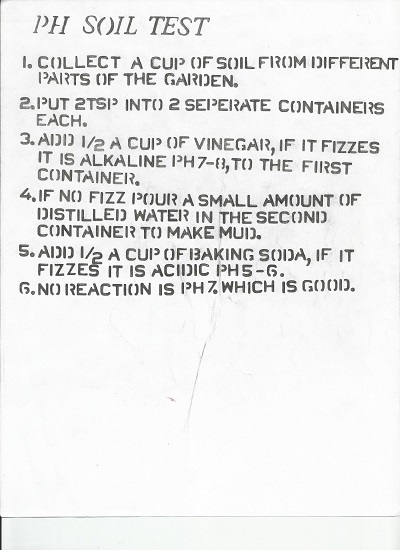 PH SOIL TEST
1. COLLECT A CUP OF SOIL FROM DIFFERENT
PARTS OF THE GARDEN.
2. PUT 2TSP INTO 2 SEPERATE CONTAINERS
EACH.
3. ADD 1/2 A CUP OF VINEGAR, IF IT FIZZES
IT IS ALKALINE PH7-8, TO THE FIRST
CONTAINER.
4. IF NO FIZZ POUR A SMALL AMOUNT OF
DISTILLED WATER IN THE SECOND
CONTAINER TO MAKE MUD.
5. ADD 1/2 A CUP OF BAKING SODA, IF IT
FIZZES IT IS ACIDIC PH5-6.
6. NO REACTION IS PH7, WHICH IS GOOD.